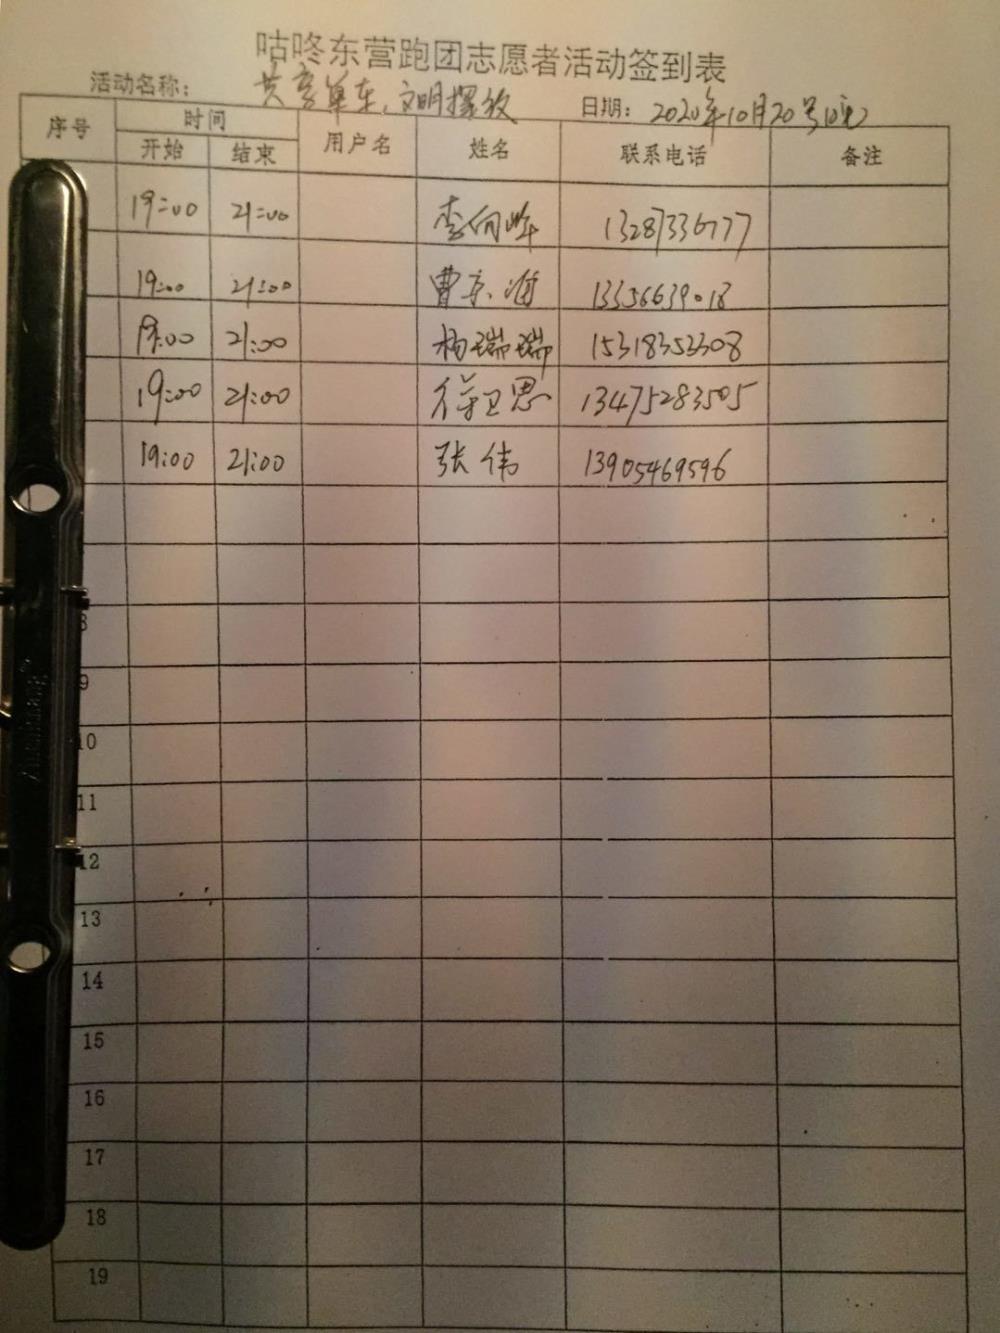 咕咚东营跑团志愿者活动签到表
活动名称: 共享单车、文明摆放 日期: 2020年10月20号
序号 时间 用户名 姓名 联系电话 备注
开始 结束
19:00 21:00 李向峰 13287336777
19:00 21:00 13356639018
19:00 21:00 杨瑞瑞 15318352308
19:00 21:00 徐卫思 13475283505
19:00 21:00 张伟 13905469596
8
9
10
11
12
13
14
15
16
17
18
19